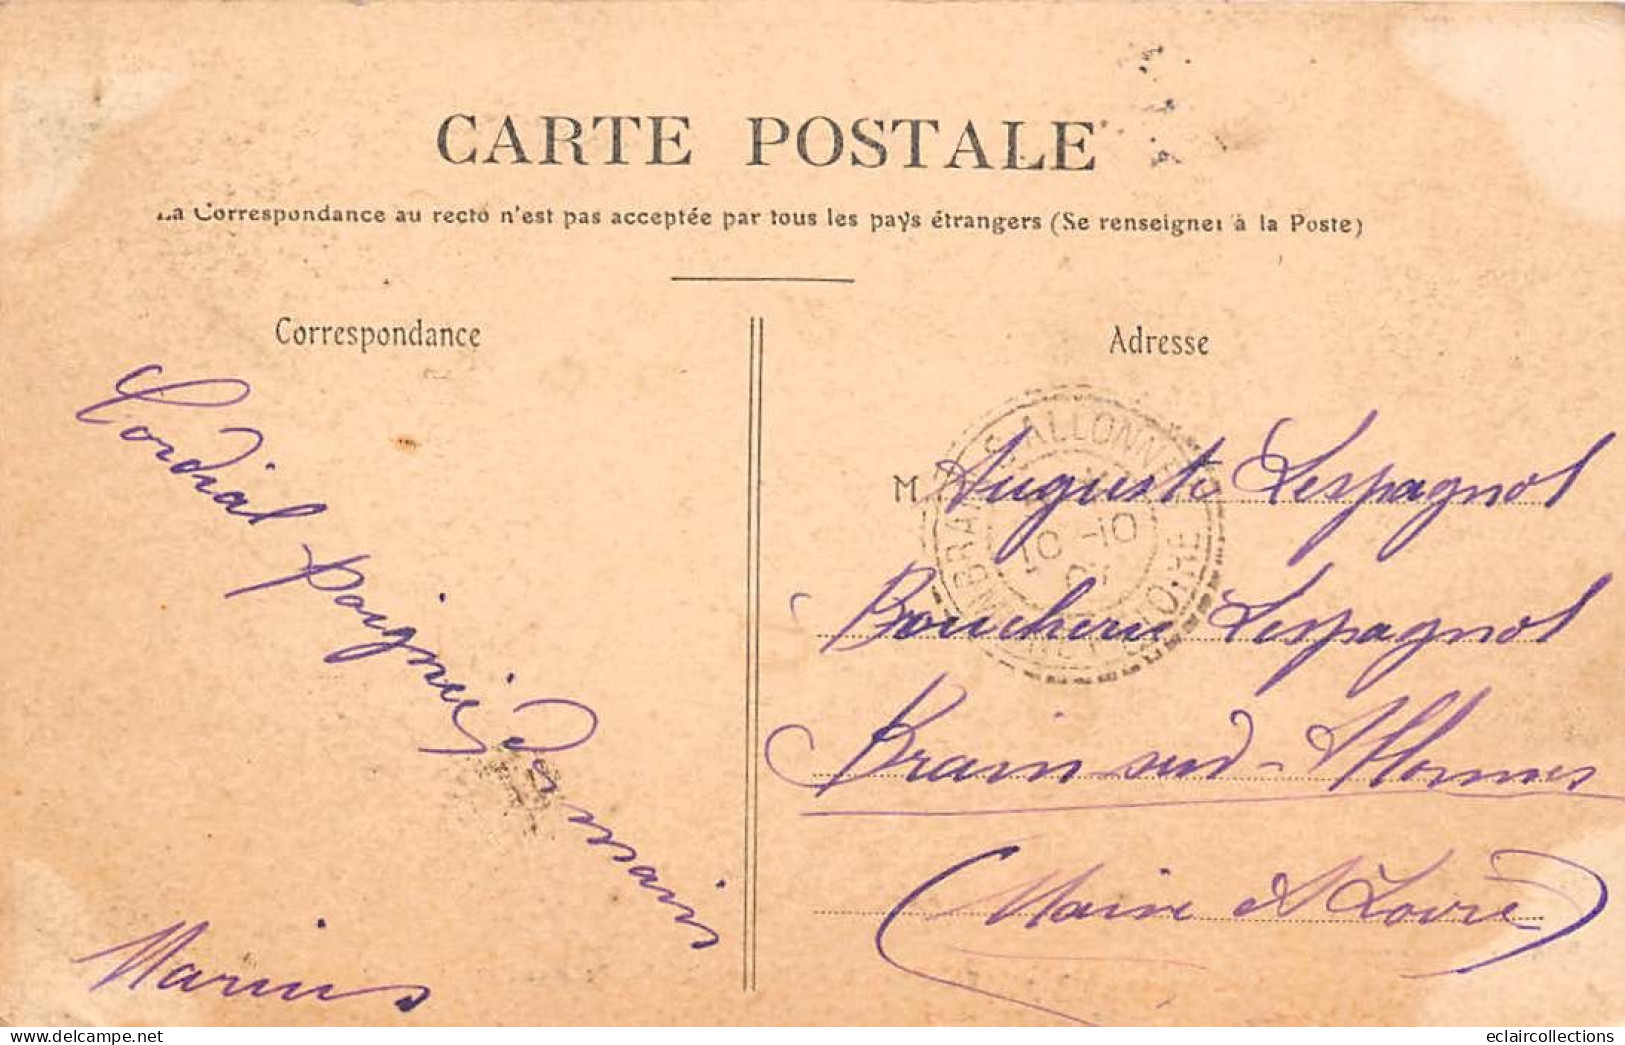 CARTE POSTALE
La Correspondance au recto n'est pas acceptée par tous les pays étrangers (Se renseigner à la Poste)
Correspondance
Adresse
Cordial poignée de main
Marius
M Auguste Lespagnol
Boucherie Lespagnol
Brain-sur-Allonnes
(Maine et Loire)
BRAIN-S-ALLONNES
10-10
MAINE-ET-LOIRE
eclaircollections